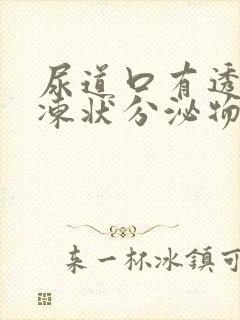 尿道口有透
凍狀分泌物
来一杯冰鎮可